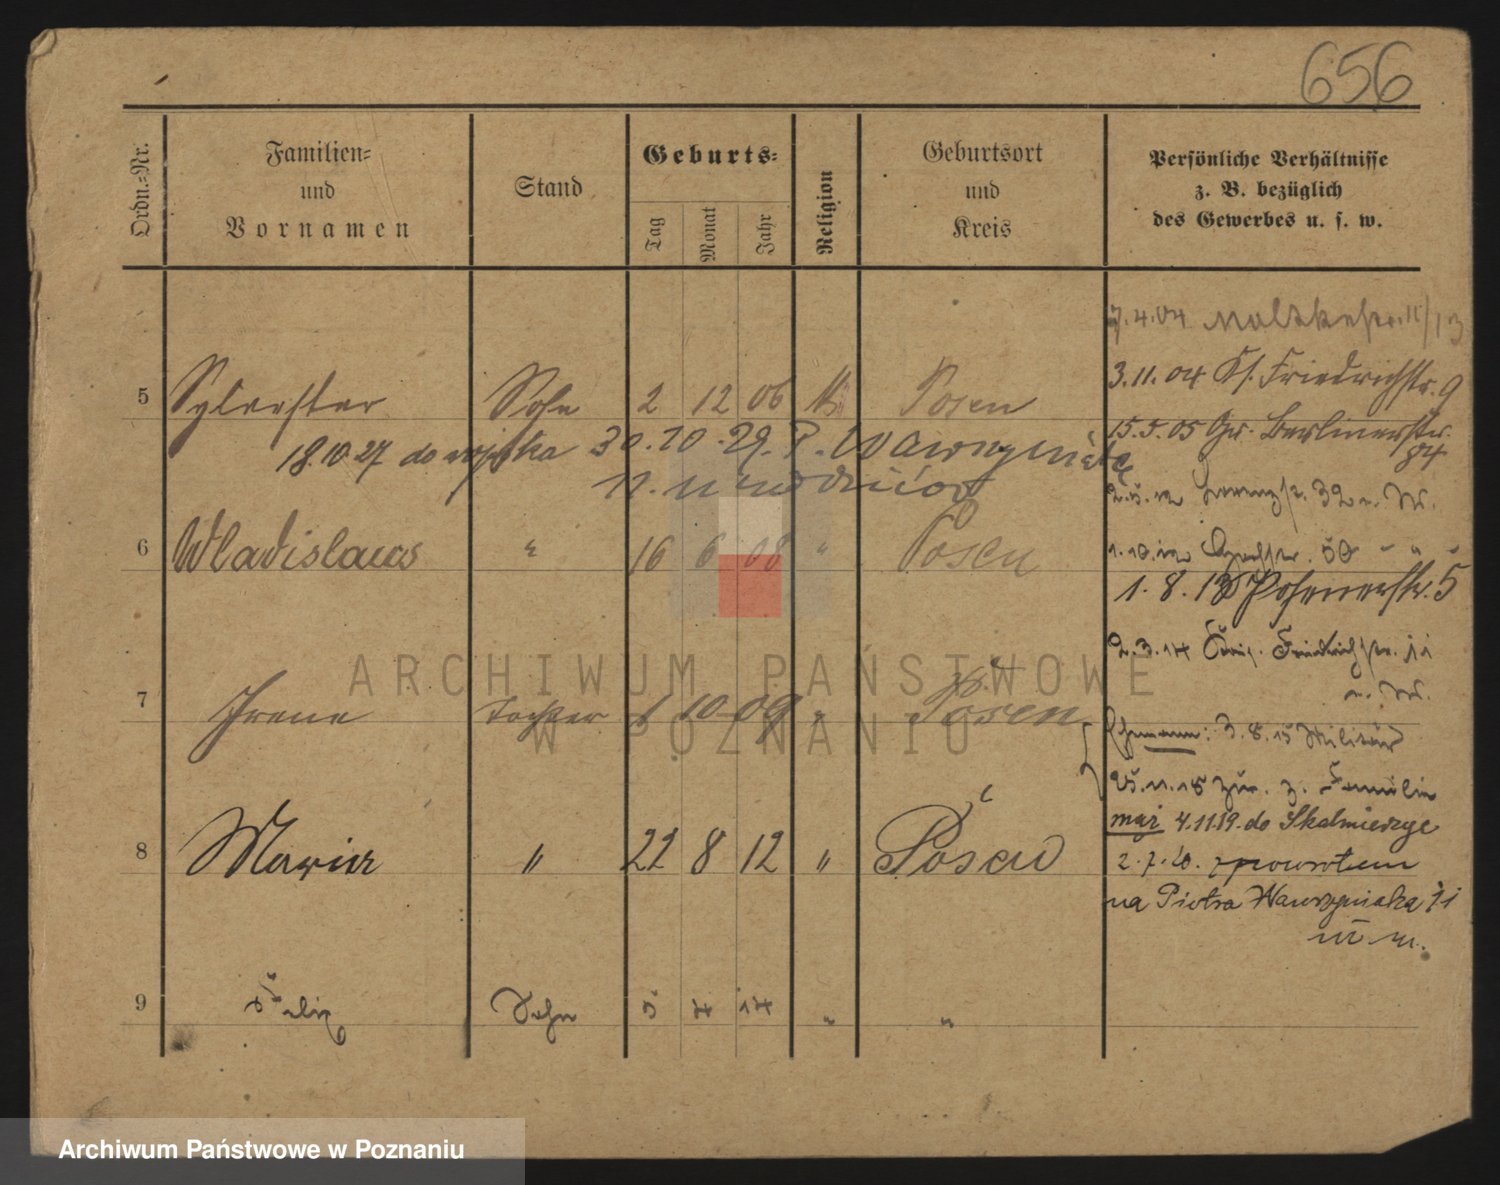 656
Ordn.=Nr.
Familien=
und
Vornamen
Stand
Geburts=
Tag
Monat
Jahr
Religion
Geburtsort
und
Kreis
Persönliche Verhältnisse
z. B. bezüglich
des Gewerbes u. s. w.
7.4.04 Moltkestr. 11/13
3.11.04 Ks. Friedrichstr. 9
5 Sylvester Sohn 2 12 06 k Posen
15.5.05 Gr. Berlinerstr.
84
18.10.27 do wojska 30.10.29. P. Wawrzyniaka
11. u rodziców
32
6 Wladislaus " 16 6 08 " Posen
1.10.12
1.8.13 Posenerstr. 5
2.3.14 Friedrichstr.
7 Irene Tochter 1 10 09 " Posen
Ehemann: 3.8.15 Militär
25.11.18 zur. z. Familie
mąż 4.11.19. do Skalmierzyc
8 Maria " 22 8 12 " Posen
2.7.20. z powrotem
na Piotra Wawrzyniaka 11
III m.
9 Felix Sohn 5 4 14 " "
ARCHIWUM PAŃSTWOWE
W POZNANIU
Archiwum Państwowe w Poznaniu